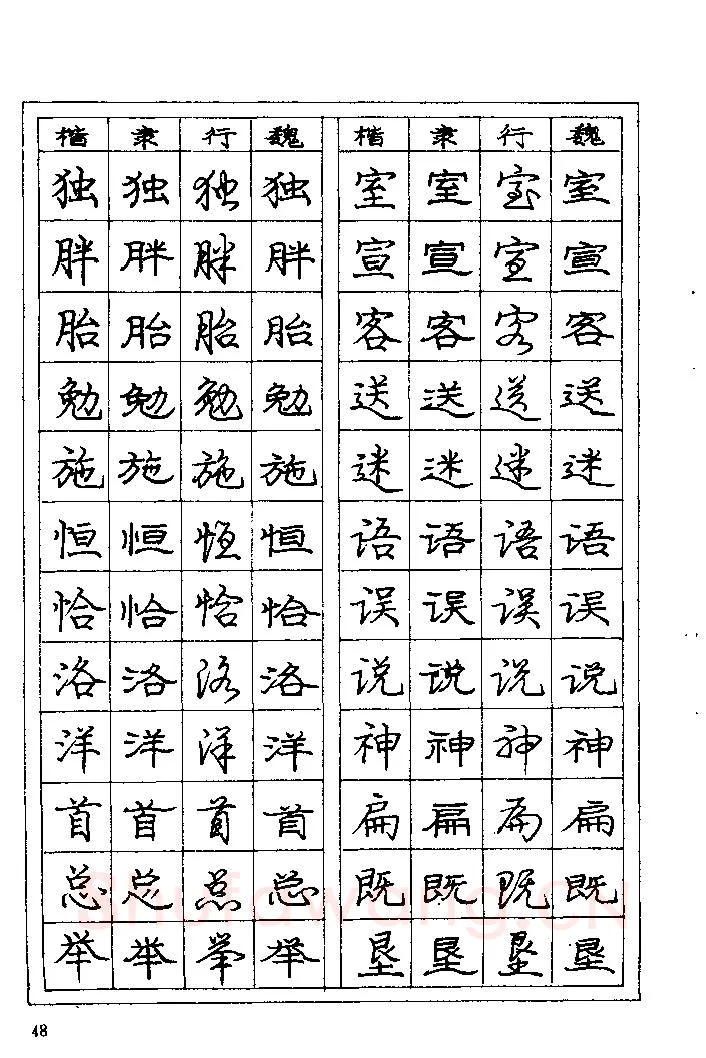 楷 隶 行 魏 楷 隶 行 魏
独 独 独 独 室 室 室 室
胖 胖 胖 胖 宣 宣 宣 宣
胎 胎 胎 胎 客 客 客 客
勉 勉 勉 勉 送 送 送 送
施 施 施 施 迷 迷 迷 迷
恒 恒 恒 恒 语 语 语 语
恰 恰 恰 恰 误 误 误 误
洛 洛 洛 洛 说 说 说 说
洋 洋 洋 洋 神 神 神 神
首 首 首 首 扁 扁 扁 扁
总 总 总 总 既 既 既 既
举 举 举 举 垦 垦 垦 垦
Shufawang.CN
48